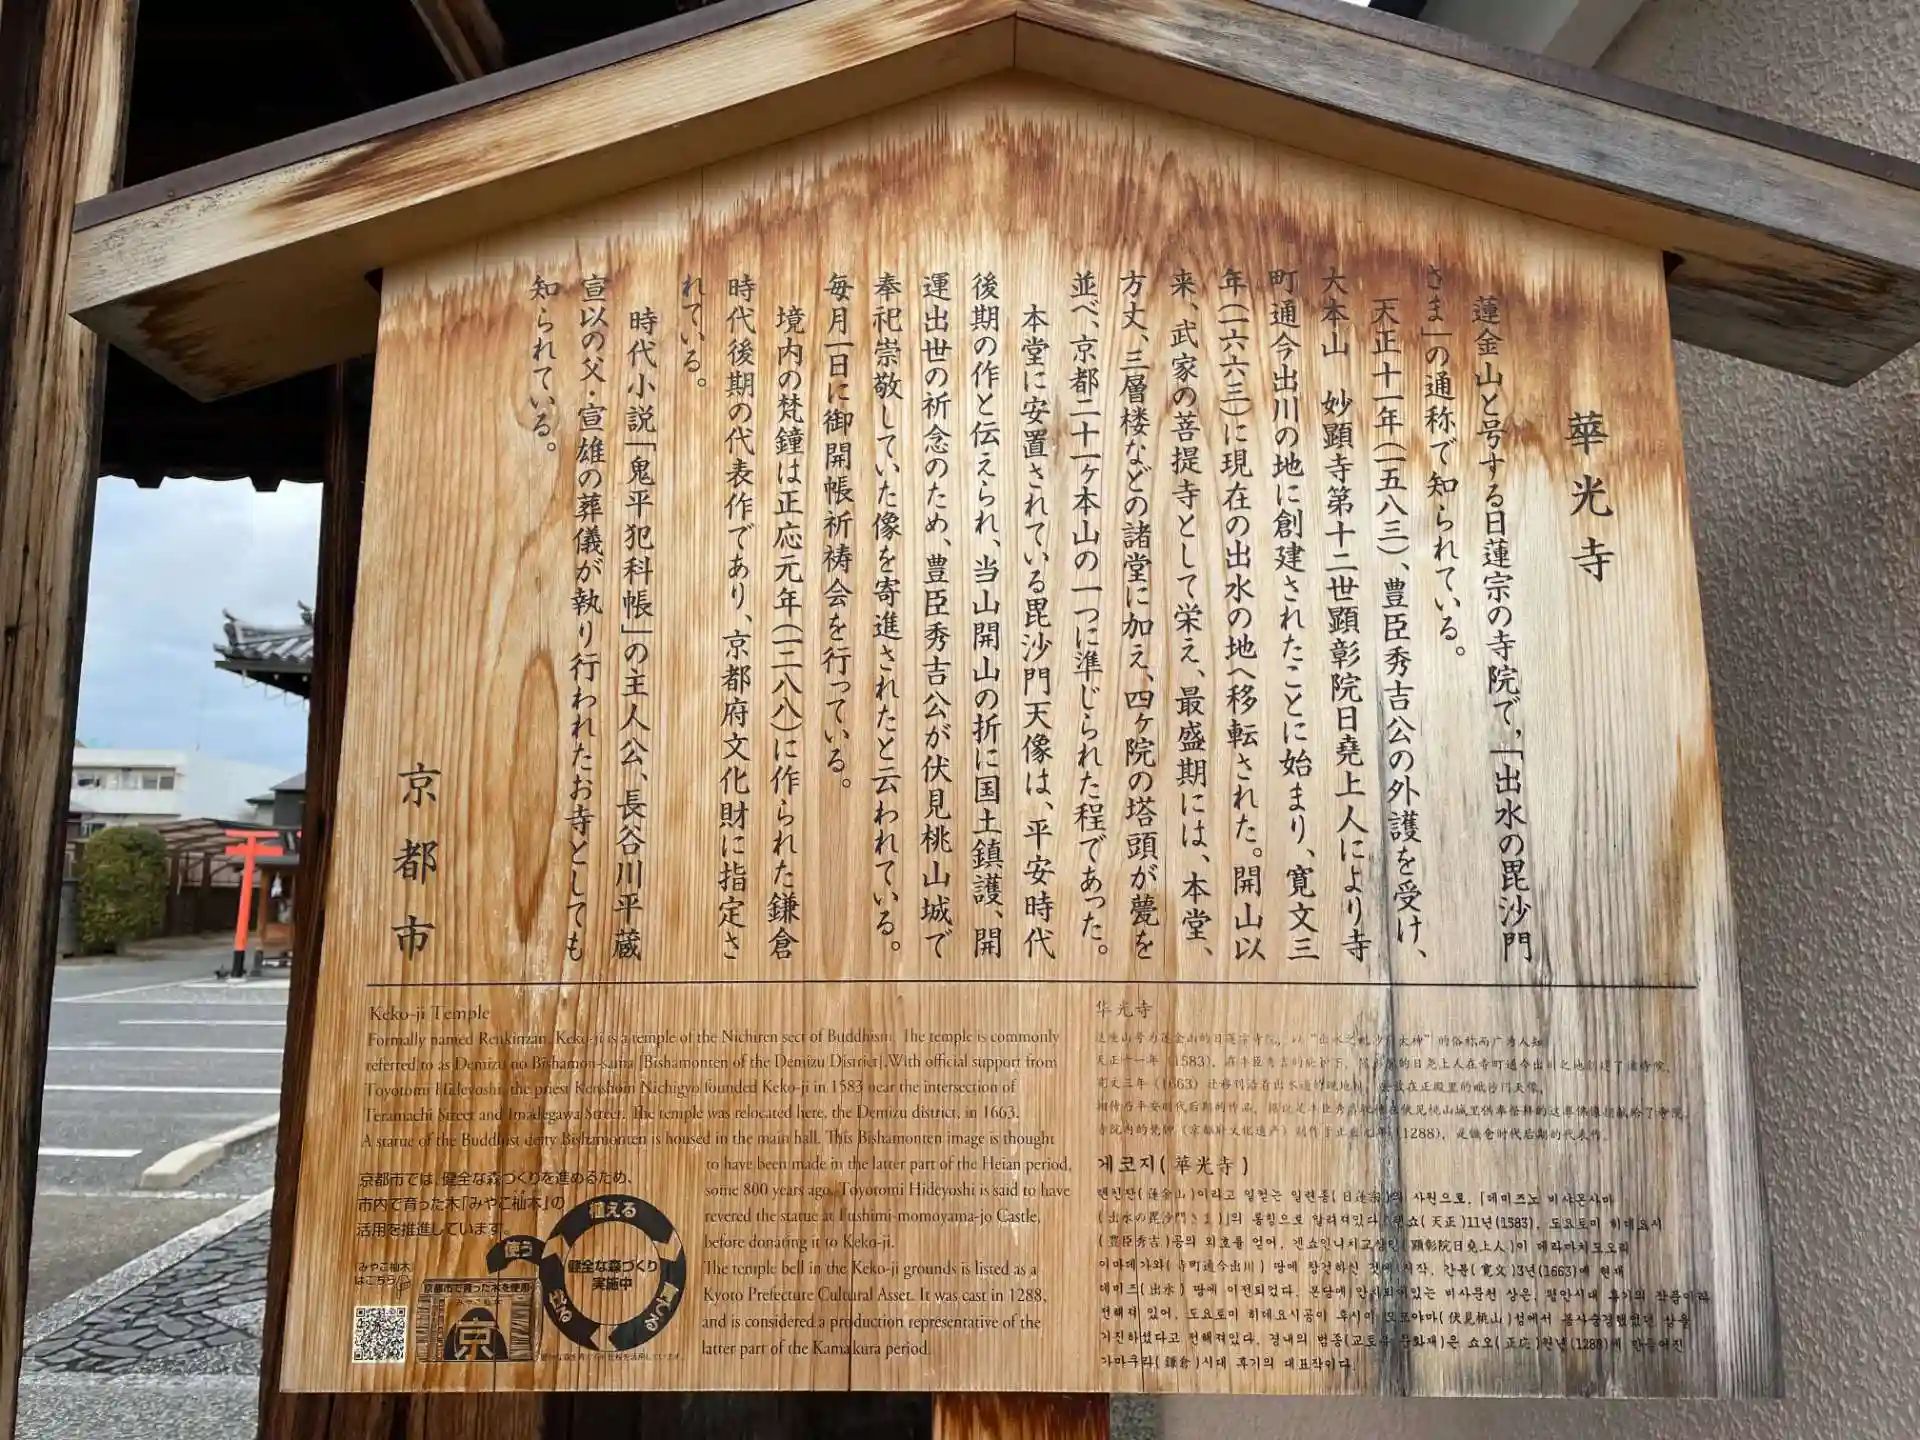 華光寺
蓮金山と号する日蓮宗の寺院で，「出水の毘沙門
さま」の通称で知られている。
天正十一年（一五八三）、豊臣秀吉公の外護を受け、
大本山　妙顕寺第十二世顕彰院日堯上人により寺
町通今出川の地に創建されたことに始まり、寛文三
年（一六六三）に現在の出水の地へ移転された。開山以
来、武家の菩提寺として栄え、最盛期には、本堂、
方丈、三層楼などの諸堂に加え、四ヶ院の塔頭が甍を
並べ、京都二十一ヶ本山の一つに準じられた程であった。
本堂に安置されている毘沙門天像は、平安時代
後期の作と伝えられ、当山開山の折に国土鎮護、開
運出世の祈念のため、豊臣秀吉公が伏見桃山城で
奉祀崇敬していた像を寄進されたと云われている。
毎月一日に御開帳祈祷会を行っている。
境内の梵鐘は正応元年（一二八八）に作られた鎌倉
時代後期の代表作であり、京都府文化財に指定さ
れている。
時代小説「鬼平犯科帳」の主人公、長谷川平蔵
宣以の父・宣雄の葬儀が執り行われたお寺としても
知られている。
京都市
Keko-ji Temple
Formally named Renkinzan, Keko-ji is a temple of the Nichiren sect of Buddhism. The temple is commonly
referred to as Demizu no Bishamon-sama [Bishamonten of the Demizu District]. With official support from
Toyotomi Hideyoshi, the priest Kenshoin Nichigyo founded Keko-ji in 1583 near the intersection of
Teramachi Street and Imadegawa Street. The temple was relocated here, the Demizu district, in 1663.
A statue of the Buddhist deity Bishamonten is housed in the main hall. This Bishamonten image is thought
to have been made in the latter part of the Heian period,
some 800 years ago. Toyotomi Hideyoshi is said to have
revered the statue at Fushimi-momoyama-jo Castle,
before donating it to Keko-ji.
The temple bell in the Keko-ji grounds is listed as a
Kyoto Prefecture Cultural Asset. It was cast in 1288,
and is considered a production representative of the
latter part of the Kamakura period.
京都市では、健全な森づくりを進めるため、
市内で育った木「みやこ杣木」の
活用を推進しています。
みやこ杣木
はこちら
植える
使う
育てる
伐る
健全な森づくり
実施中
京都市で育った木を使用
みやこ杣木
京
华光寺
天正十一年（1583），
宽文三年（1663）
（1288），是镰仓时代后期的代表作。
게코지(華光寺)
렌킨잔(蓮金山)이라고 일컫는 일련종(日蓮宗)의 사원으로,「데미즈노 비샤몬사마
(出水の毘沙門さま)」의 통칭으로 알려져있다. 텐쇼(天正)11년(1583), 도요토미 히데요시
(豊臣秀吉)공의 외호를 얻어, 켄쇼인니치교상인(顕彰院日堯上人)이 데라마치도오리
이마데가와(寺町通今出川) 땅에 창건하신 것에 시작, 간분(寛文)3년(1663)에 현재
데미즈(出水) 땅에 이전되었다. 본당에 안치되어있는 비사문천 상은, 평안시대 후기의 작품이라
전해져 있어, 도요토미 히데요시공이 후시미 모모야마(伏見桃山)성에서 봉사숭경했었던 상을
기진하셨다고 전해져있다. 경내의 범종(교토유 문화재)은 쇼오(正応)원년(1288)에 만들어진
가마쿠라(鎌倉)시대 후기의 대표작이다.